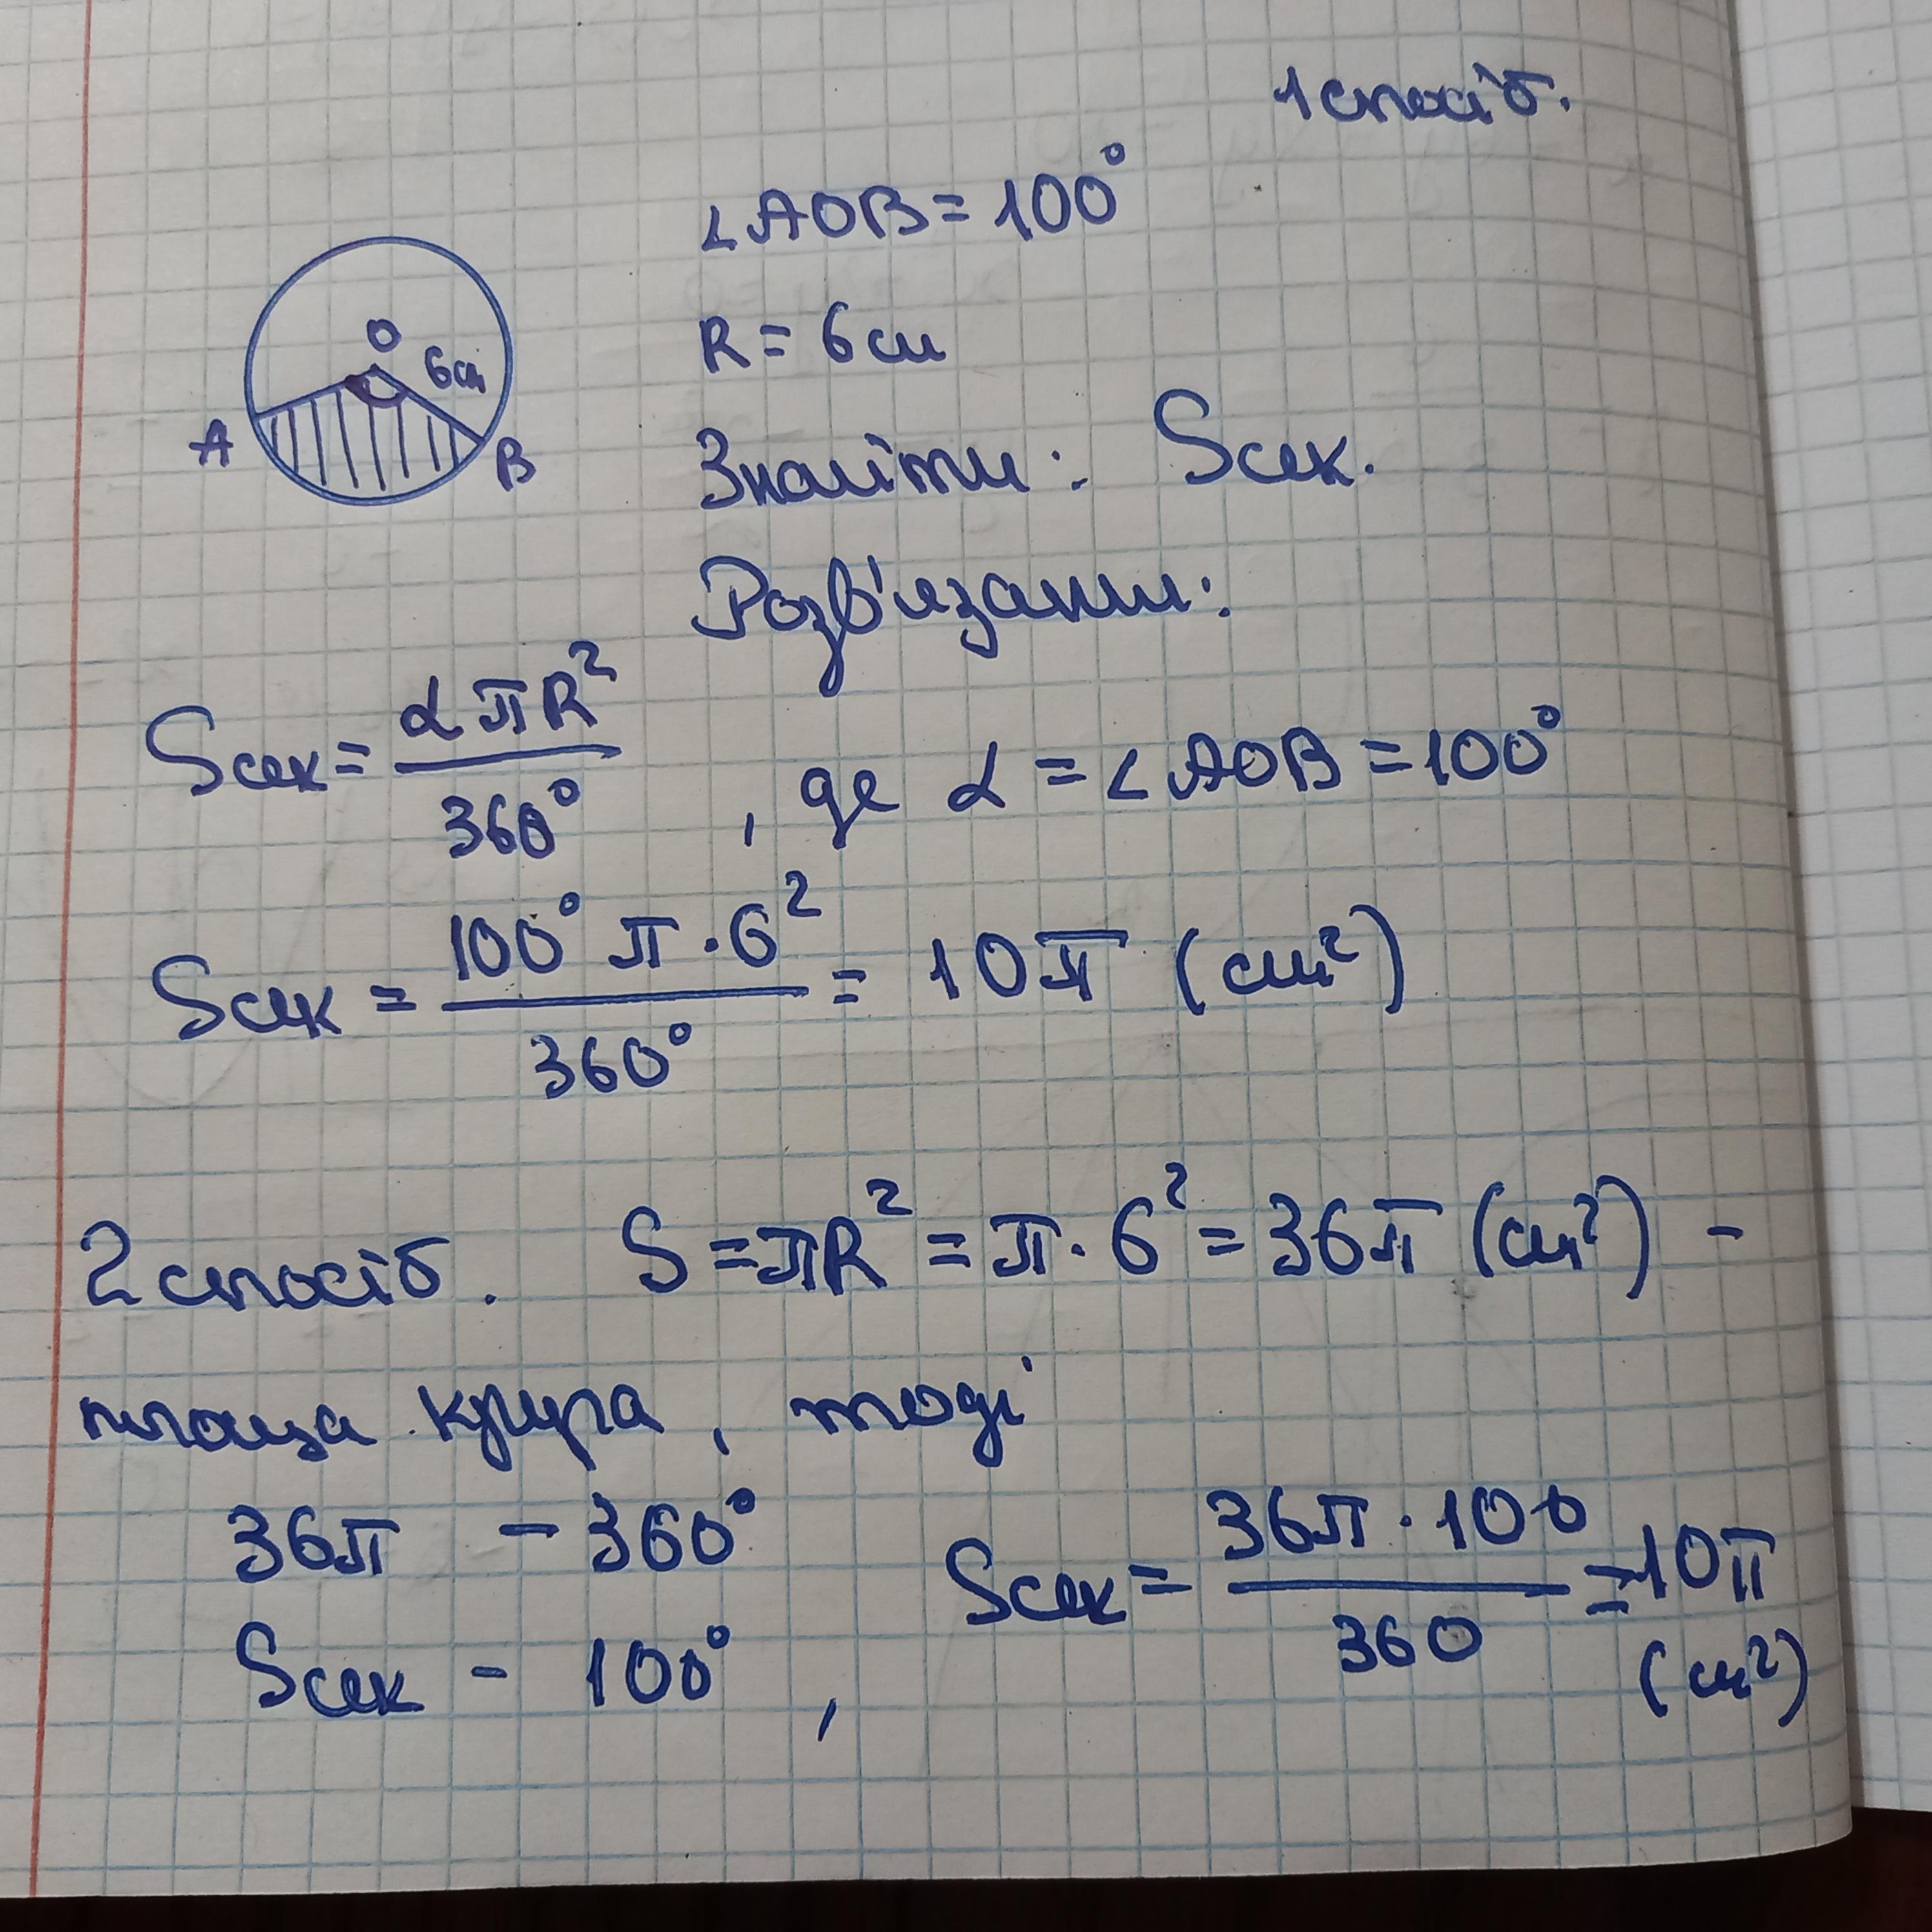 1 спосіб.
∠AOB = 100°
R = 6 см
O
6см
A
B
Знайти: Sсек.
Розв'язання:
Sсек = απR² / 360°, де α = ∠AOB = 100°
Sсек = 100° π · 6² / 360° = 10π (см²)
2 спосіб. S = πR² = π · 6² = 36π (см²) –
площа круга, тоді
36π – 360°
Sсек – 100°,
Sсек = 36π · 100 / 360 = 10π
(см²)